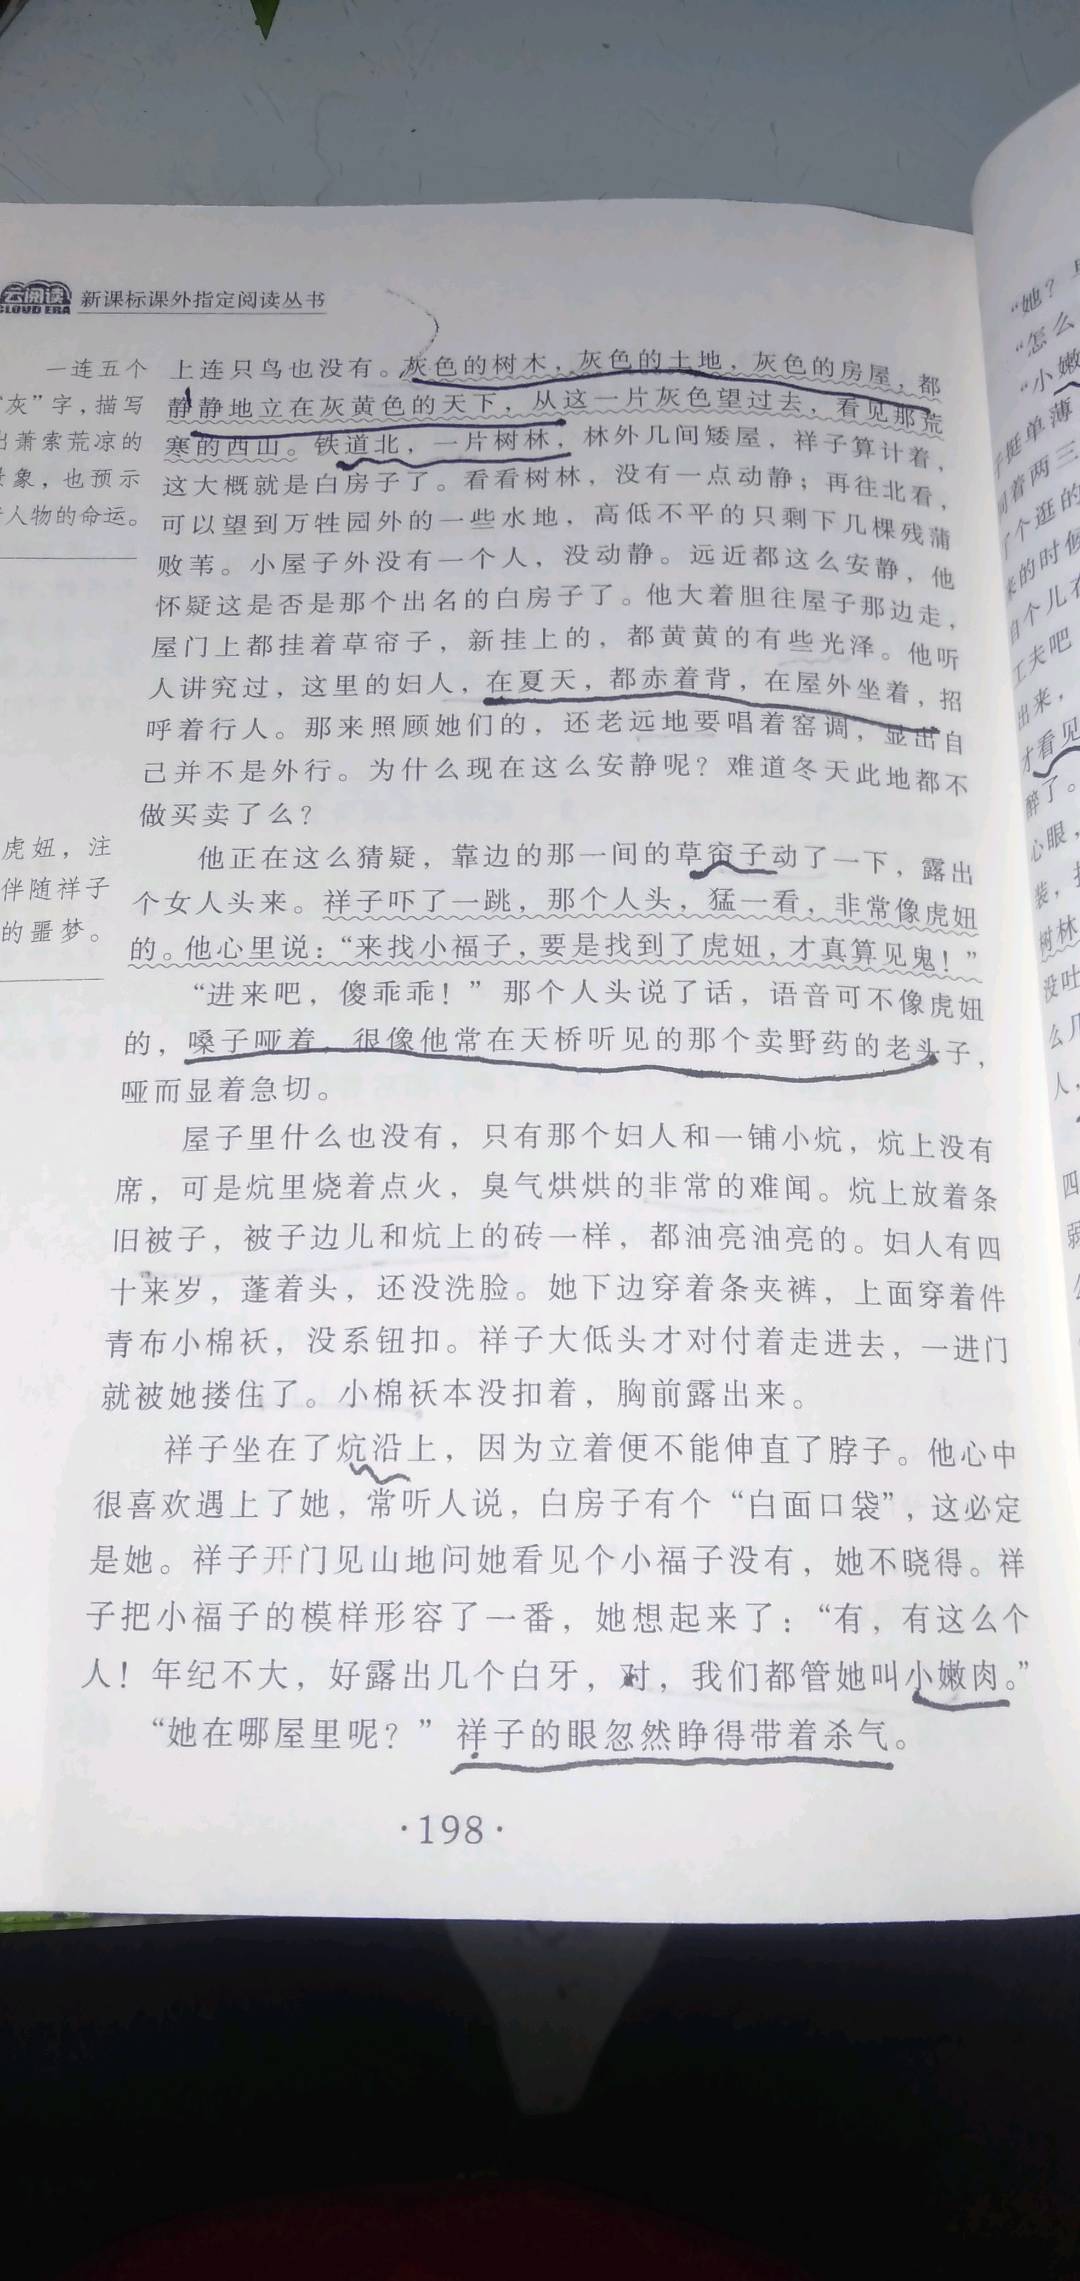 云阅读
CLOUD ERA
新课标课外指定阅读丛书
一连五个
“灰”字，描写
出萧索荒凉的
景象，也预示
着人物的命运。
虎妞，注
伴随祥子
的噩梦。
上连只鸟也没有。灰色的树木，灰色的土地，灰色的房屋，都
静静地立在灰黄色的天下，从这一片灰色望过去，看见那荒
寒的西山。铁道北，一片树林，林外几间矮屋，祥子算计着，
这大概就是白房子了。看看树林，没有一点动静；再往北看，
可以望到万牲园外的一些水地，高低不平的只剩下几棵残蒲
败苇。小屋子外没有一个人，没动静。远近都这么安静，他
怀疑这是否是那个出名的白房子了。他大着胆往屋子那边走，
屋门上都挂着草帘子，新挂上的，都黄黄的有些光泽。他听
人讲究过，这里的妇人，在夏天，都赤着背，在屋外坐着，招
呼着行人。那来照顾她们的，还老远地要唱着窑调，显出自
己并不是外行。为什么现在这么安静呢？难道冬天此地都不
做买卖了么？
他正在这么猜疑，靠边的那一间的草帘子动了一下，露出
个女人头来。祥子吓了一跳，那个人头，猛一看，非常像虎妞
的。他心里说：“来找小福子，要是找到了虎妞，才真算见鬼！”
“进来吧，傻乖乖！”那个人头说了话，语音可不像虎妞
的，嗓子哑着，很像他常在天桥听见的那个卖野药的老头子，
哑而显着急切。
屋子里什么也没有，只有那个妇人和一铺小炕，炕上没有
席，可是炕里烧着点火，臭气烘烘的非常的难闻。炕上放着条
旧被子，被子边儿和炕上的砖一样，都油亮油亮的。妇人有四
十来岁，蓬着头，还没洗脸。她下边穿着条夹裤，上面穿着件
青布小棉袄，没系钮扣。祥子大低头才对付着走进去，一进门
就被她搂住了。小棉袄本没扣着，胸前露出来。
祥子坐在了炕沿上，因为立着便不能伸直了脖子。他心中
很喜欢遇上了她，常听人说，白房子有个“白面口袋”，这必定
是她。祥子开门见山地问她看见个小福子没有，她不晓得。祥
子把小福子的模样形容了一番，她想起来了：“有，有这么个
人！年纪不大，好露出几个白牙，对，我们都管她叫小嫩肉。”
“她在哪屋里呢？”祥子的眼忽然睁得带着杀气。
·198·
“她？
“怎么
“小嫩
挺单薄
着两三
个逛的
来的时候
个儿
工夫吧
出来，
才看见
醉了。
心眼，
装，
树林
没吐
么几
人，
四